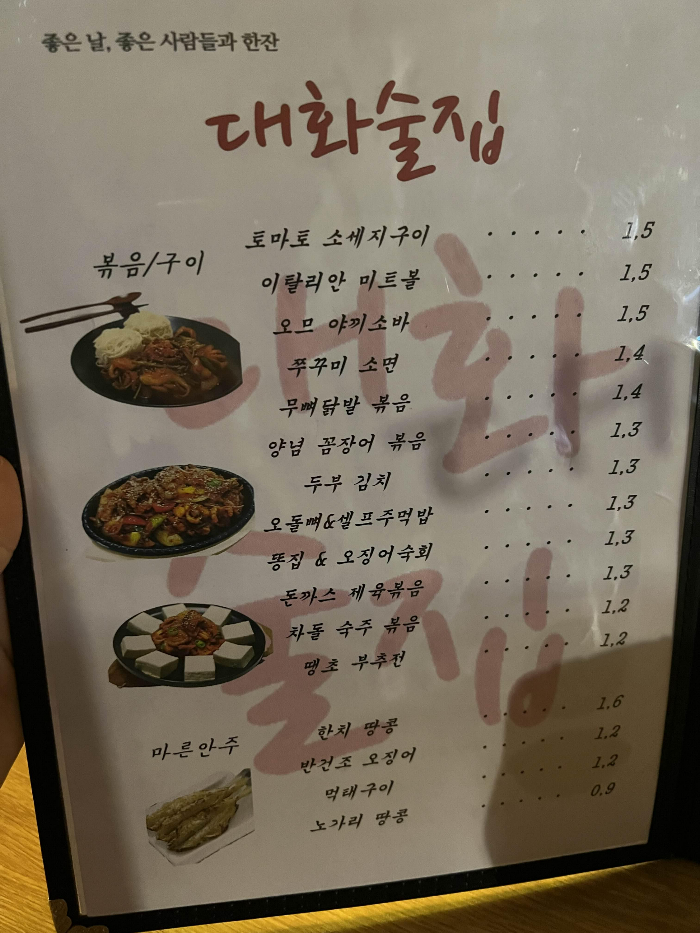 좋은 날, 좋은 사람들과 한잔
대화술집
볶음/구이
토마토 소세지구이 · · · · · 1,5
이탈리안 미트볼 · · · · · 1,5
오므 야끼소바 · · · · · 1,5
쭈꾸미 소면 · · · · · 1,4
무뼈닭발 볶음 · · · · · 1,4
양념 꼼장어 볶음 · · · · · 1,3
두부 김치 · · · · · 1,3
오돌뼈&셀프주먹밥 · · · · · 1,3
똥집 & 오징어숙회 · · · · · 1,3
돈까스 제육볶음 · · · · · 1,3
차돌 숙주 볶음 · · · · · 1,2
땡초 부추전 · · · · · 1,2
마른안주
한치 땅콩 · · · · · 1,6
반건조 오징어 · · · · · 1,2
먹태구이 · · · · · 1,2
노가리 땅콩 · · · · · 0,9
대화
술집